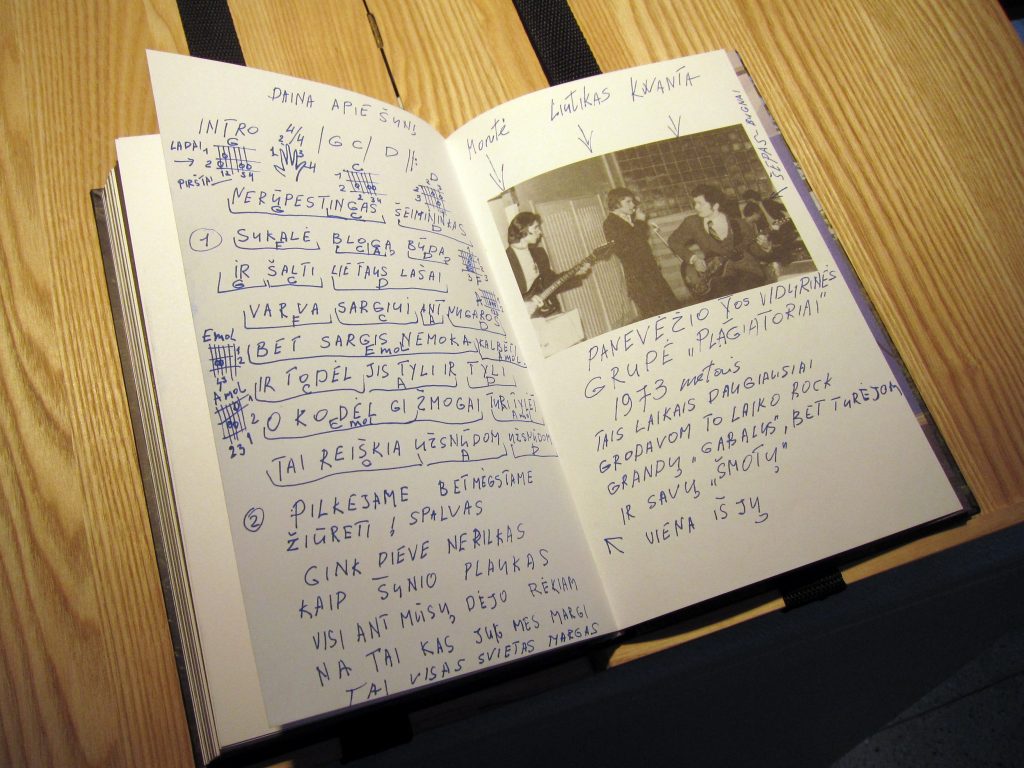 DAINA APIE ŠUNĮ
INTRO 4/4 | G C | D ‖:
LADAI → 1 2
PIRŠTAI
G
C
D
NERŪPESTINGAS ŠEIMININKAS
G C D
① SUKALĖ BLOGĄ BŪDĄ
IR ŠALTI LIETAUS LAŠAI
G G D
VARVA SARGIUI ANT NUGAROS
Emol
BET SARGIS NEMOKA KALBĖTI
Emol Amol
Amol
IR TODĖL JIS TYLI IR TYLI
A D
O KODĖL GI ŽMOGAI TURI TYLĖTI
Emol Amol
TAI REIŠKIA UŽSNŪDOM UŽSNŪDOM
A D
② PILKĖJAME BET MĖGSTAME
ŽIŪRĖTI Į SPALVAS
GINK DIEVE NERILKAS
KAIP ŠUNIO PLAUKAS
VISI ANT MŪSŲ DĖJO RĖKIAM
NA TAI KAS JUK MES MARGI
TAI VISAS SVIETAS MARGAS
Monutė Liutikas Kwanta
ZEPAS - BUGNAI
PANEVĖŽIO VOS VIDURINĖS
GRUPĖ „PLAGIATORIAI"
1973 metais
TAIS LAIKAIS DAUGIAUSIAI
GRODAVOM TO LAIKO ROCK
GRANDŲ „GABALUS", BET TURĖJOM
IR SAVŲ „ŠMOTŲ"
VIENA IŠ JŲ